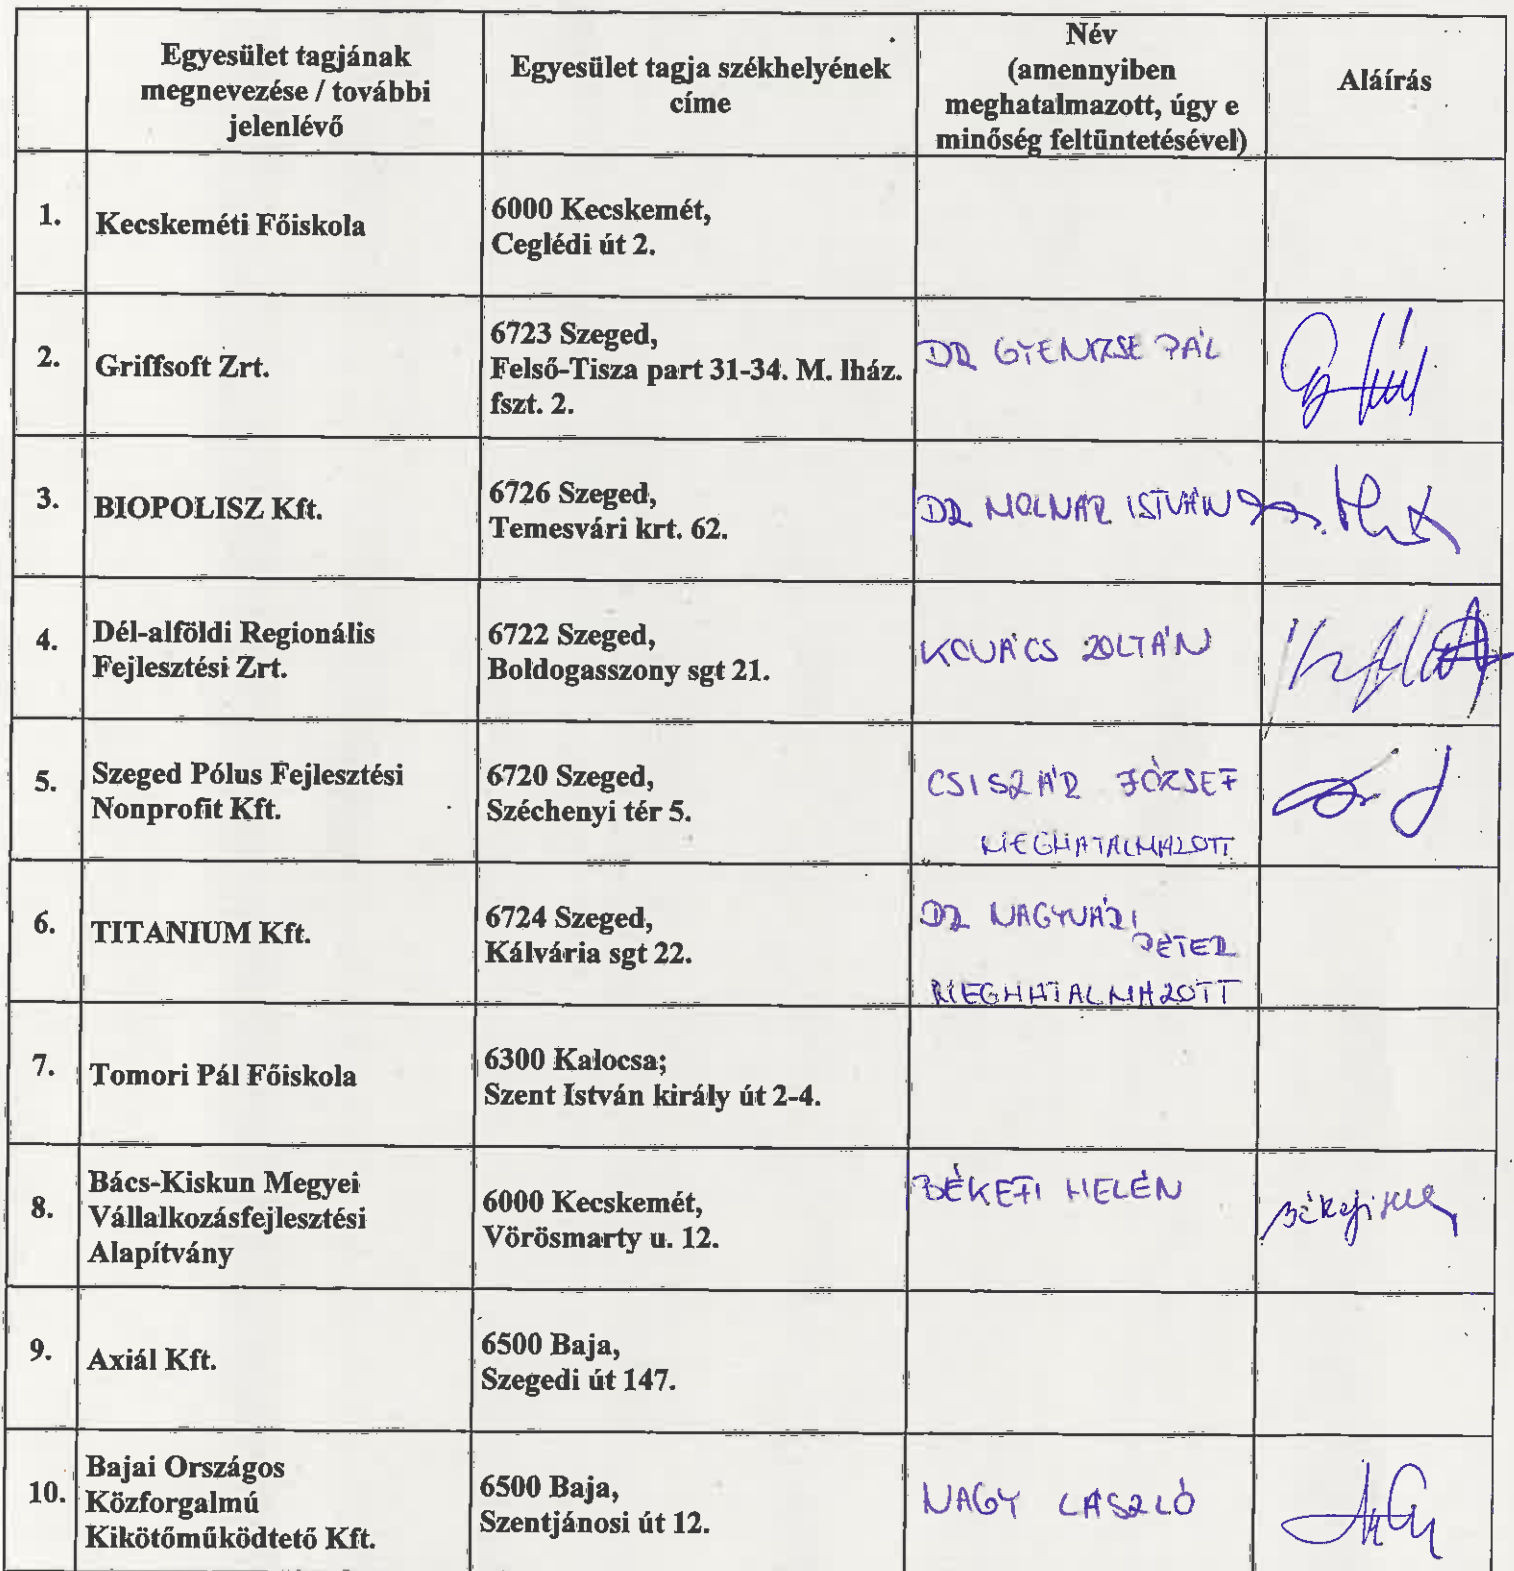 Egyesület tagjának
megnevezése / további
jelenlévő
Egyesület tagja székhelyének
címe
Név
(amennyiben
meghatalmazott, úgy e
minőség feltüntetésével)
Aláírás
1.
Kecskeméti Főiskola
6000 Kecskemét,
Ceglédi út 2.
2.
Griffsoft Zrt.
6723 Szeged,
Felső-Tisza part 31-34. M. lház.
fszt. 2.
DR GYENIZSE PÁL
3.
BIOPOLISZ Kft.
6726 Szeged,
Temesvári krt. 62.
DR MOLNÁR ISTVÁN
4.
Dél-alföldi Regionális
Fejlesztési Zrt.
6722 Szeged,
Boldogasszony sgt 21.
KOVÁCS ZOLTÁN
5.
Szeged Pólus Fejlesztési
Nonprofit Kft.
6720 Szeged,
Széchenyi tér 5.
CSISZÁR JÓZSEF
MEGHATALMAZOTT
6.
TITANIUM Kft.
6724 Szeged,
Kálvária sgt 22.
DR NAGYVÁRI
PÉTER
MEGHATALMAZOTT
7.
Tomori Pál Főiskola
6300 Kalocsa;
Szent István király út 2-4.
8.
Bács-Kiskun Megyei
Vállalkozásfejlesztési
Alapítvány
6000 Kecskemét,
Vörösmarty u. 12.
BÉKEFI HELÉN
Békefi
9.
Axiál Kft.
6500 Baja,
Szegedi út 147.
10.
Bajai Országos
Közforgalmú
Kikötőműködtető Kft.
6500 Baja,
Szentjánosi út 12.
NAGY LÁSZLÓ